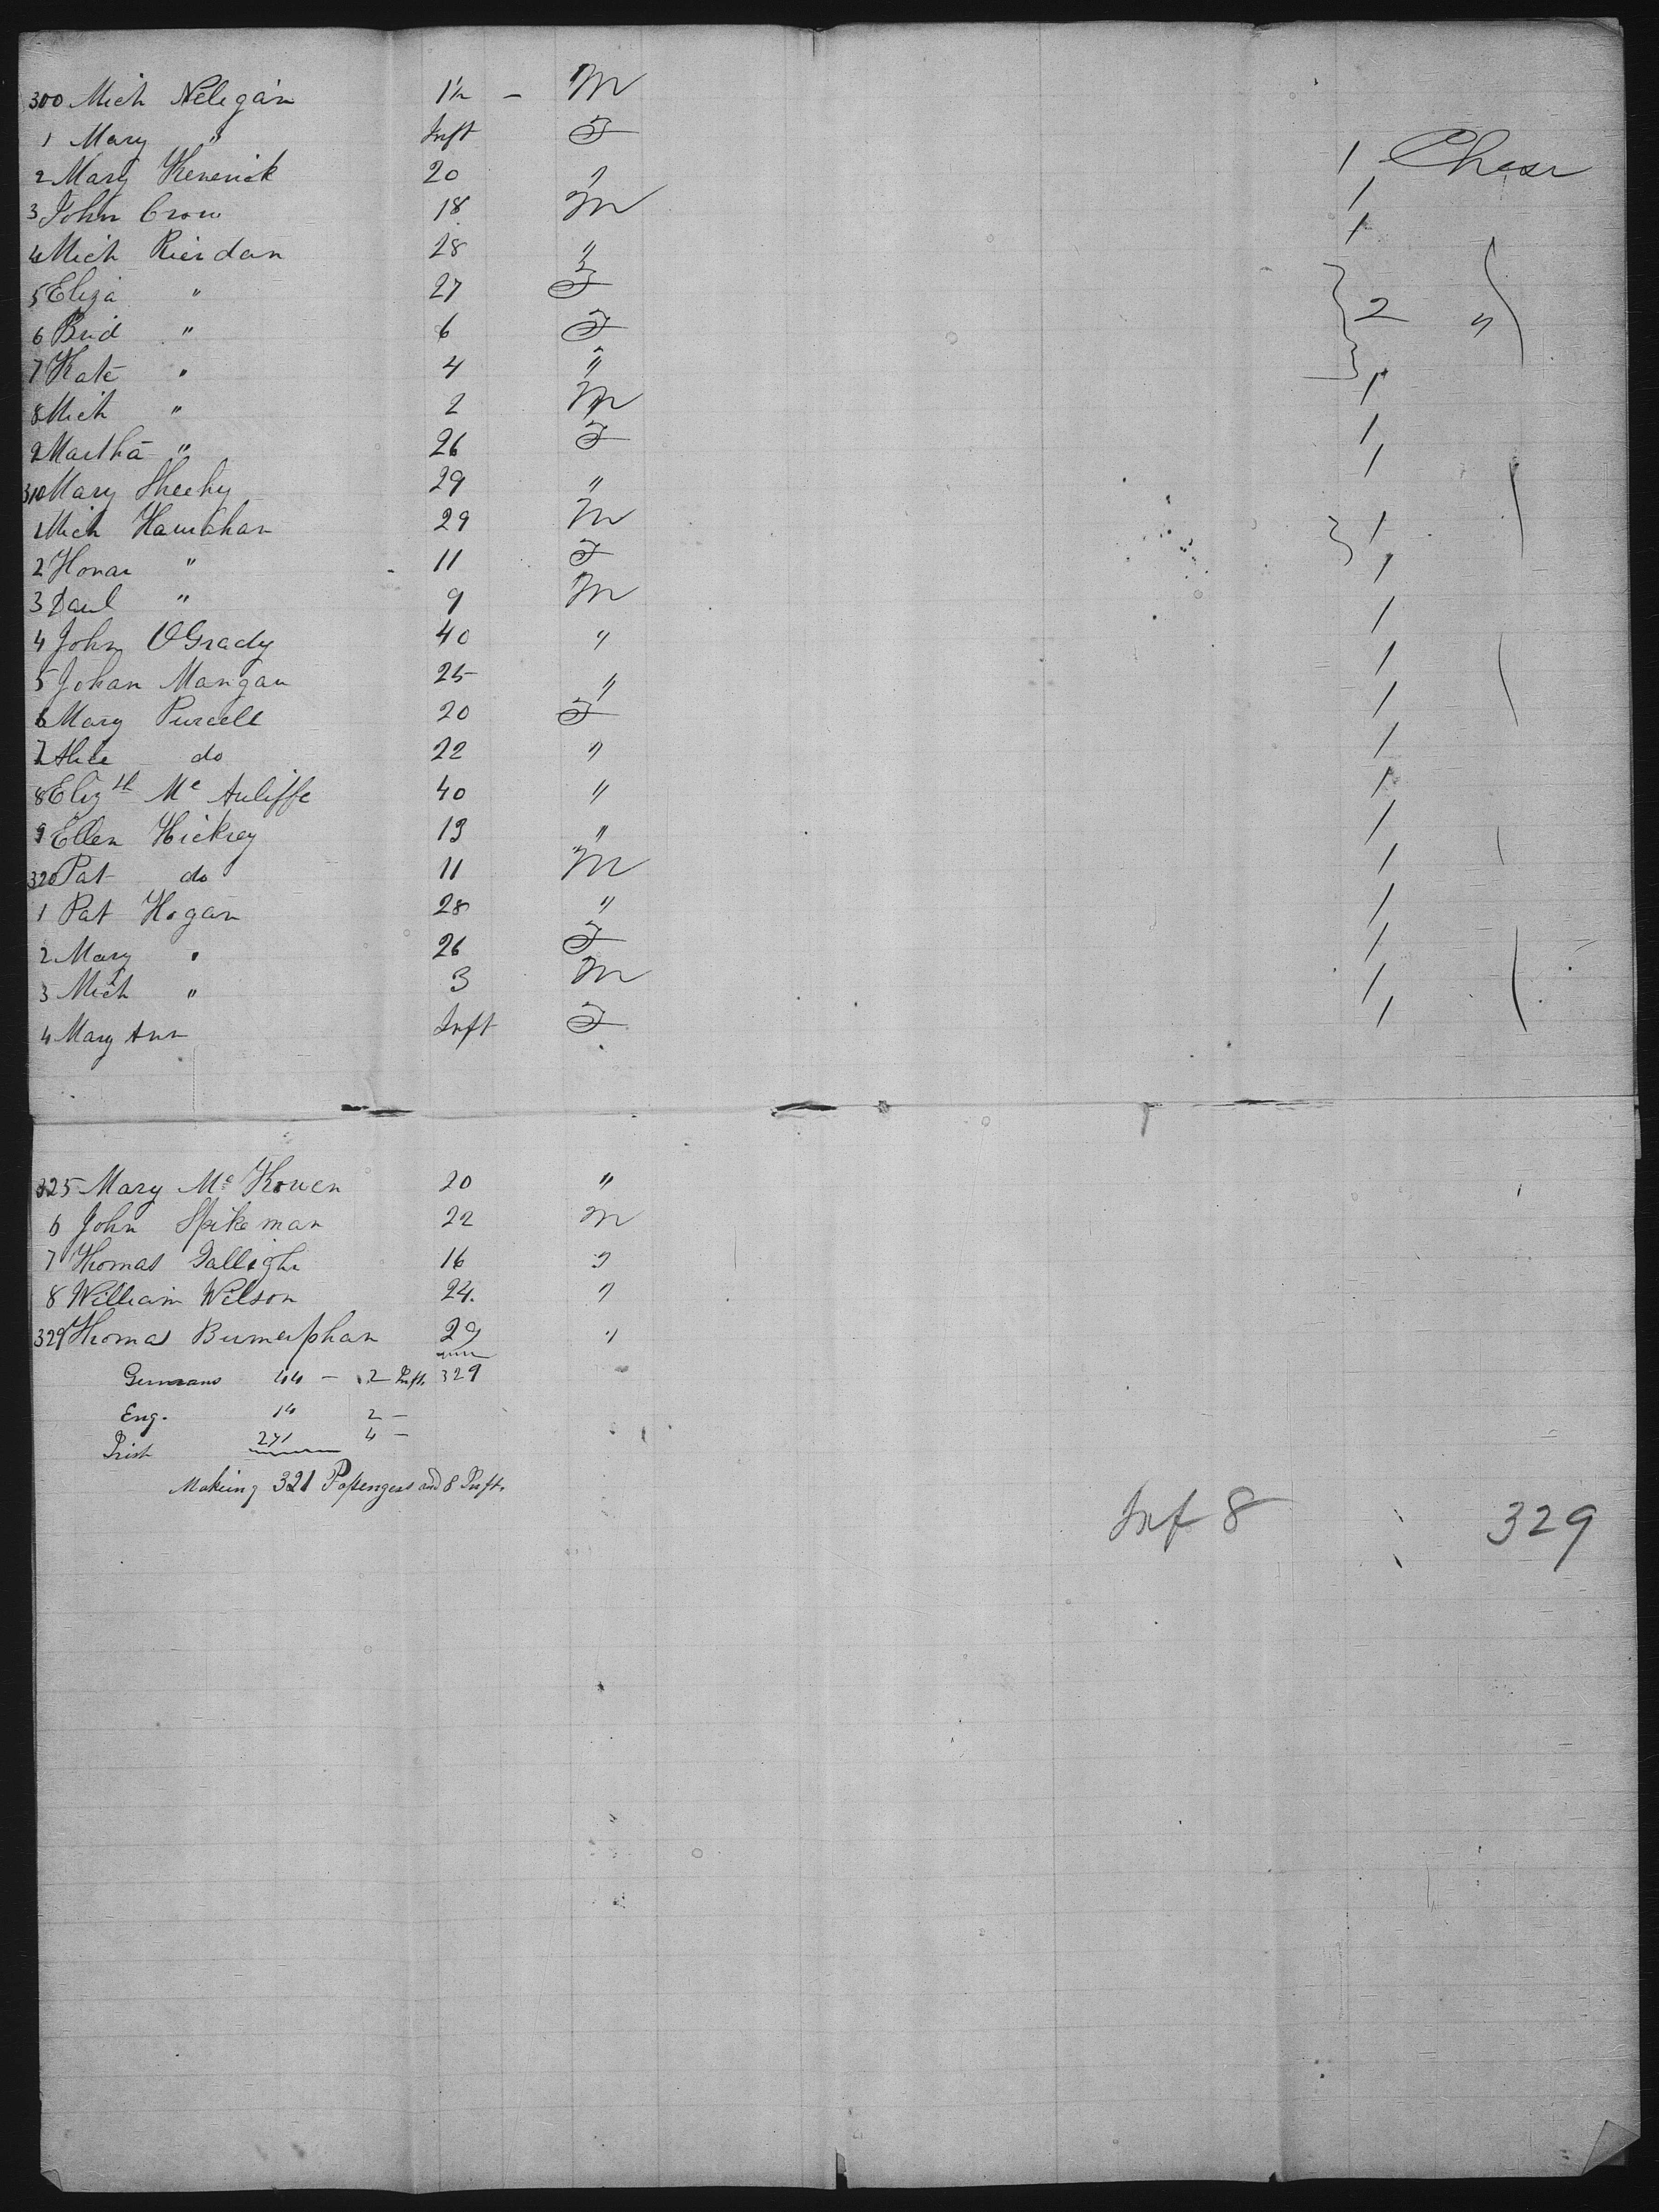 300 Mich Nelegan 1½ - M
1 Mary " Inft F
2 Mary Kenerick 20 " 1 Chest
3 John Crow 18 M 1
4 Mich Rierdan 28 " 1
5 Eliza " 27 F
6 Brid " 6 F 2 "
7 Kate " 4 "
8 Mich " 2 M 1
9 Martha " 26 F 1
310 Mary Sheehy 29 " 1
1 Mich 29 M
2 Honar " 11 F 1
3 Paul " 9 M 1
4 John OGrady 40 " 1
5 Johan Mangan 25 " 1
6 Mary Purcell 20 F 1
7 Alice do 22 " 1
8 Elizth Mc Auliffe 40 " 1
9 Ellen Hickey 13 " 1
320 Pat do 11 M 1
1 Pat Hogan 28 " 1
2 Mary " 26 F 1
3 Mich " 3 M 1
4 Mary Ann Inft F 1
325 Mary Mc Kowen 20 "
6 John Spikeman 22 M
7 Thomas 16 "
8 William Wilson 24. "
329 Thomas 29 "
Germans 44 - 2 Inft. 329
Eng. 14 2 -
Irish 271 4 -
Making 321 Passengers and 8 Inft.
Inf 8 329